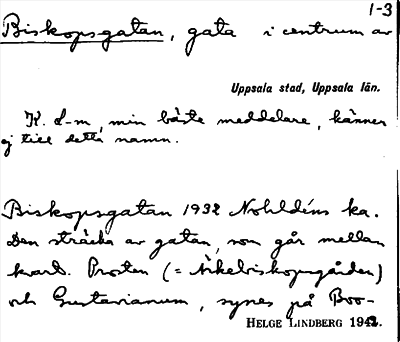 1-3
Biskopsgatan, gata i centrum av
Uppsala stad, Uppsala län.
K. L-m, min bäste meddelare, känner
ej till detta namn.
Biskopsgatan 1932 Nohldéns ka.
Den sträcka av gatan, som går mellan
kvart. Prosten (= Ärkebiskopsgården)
och Gustavianum, synes på Boo-
HELGE LINDBERG 1942.